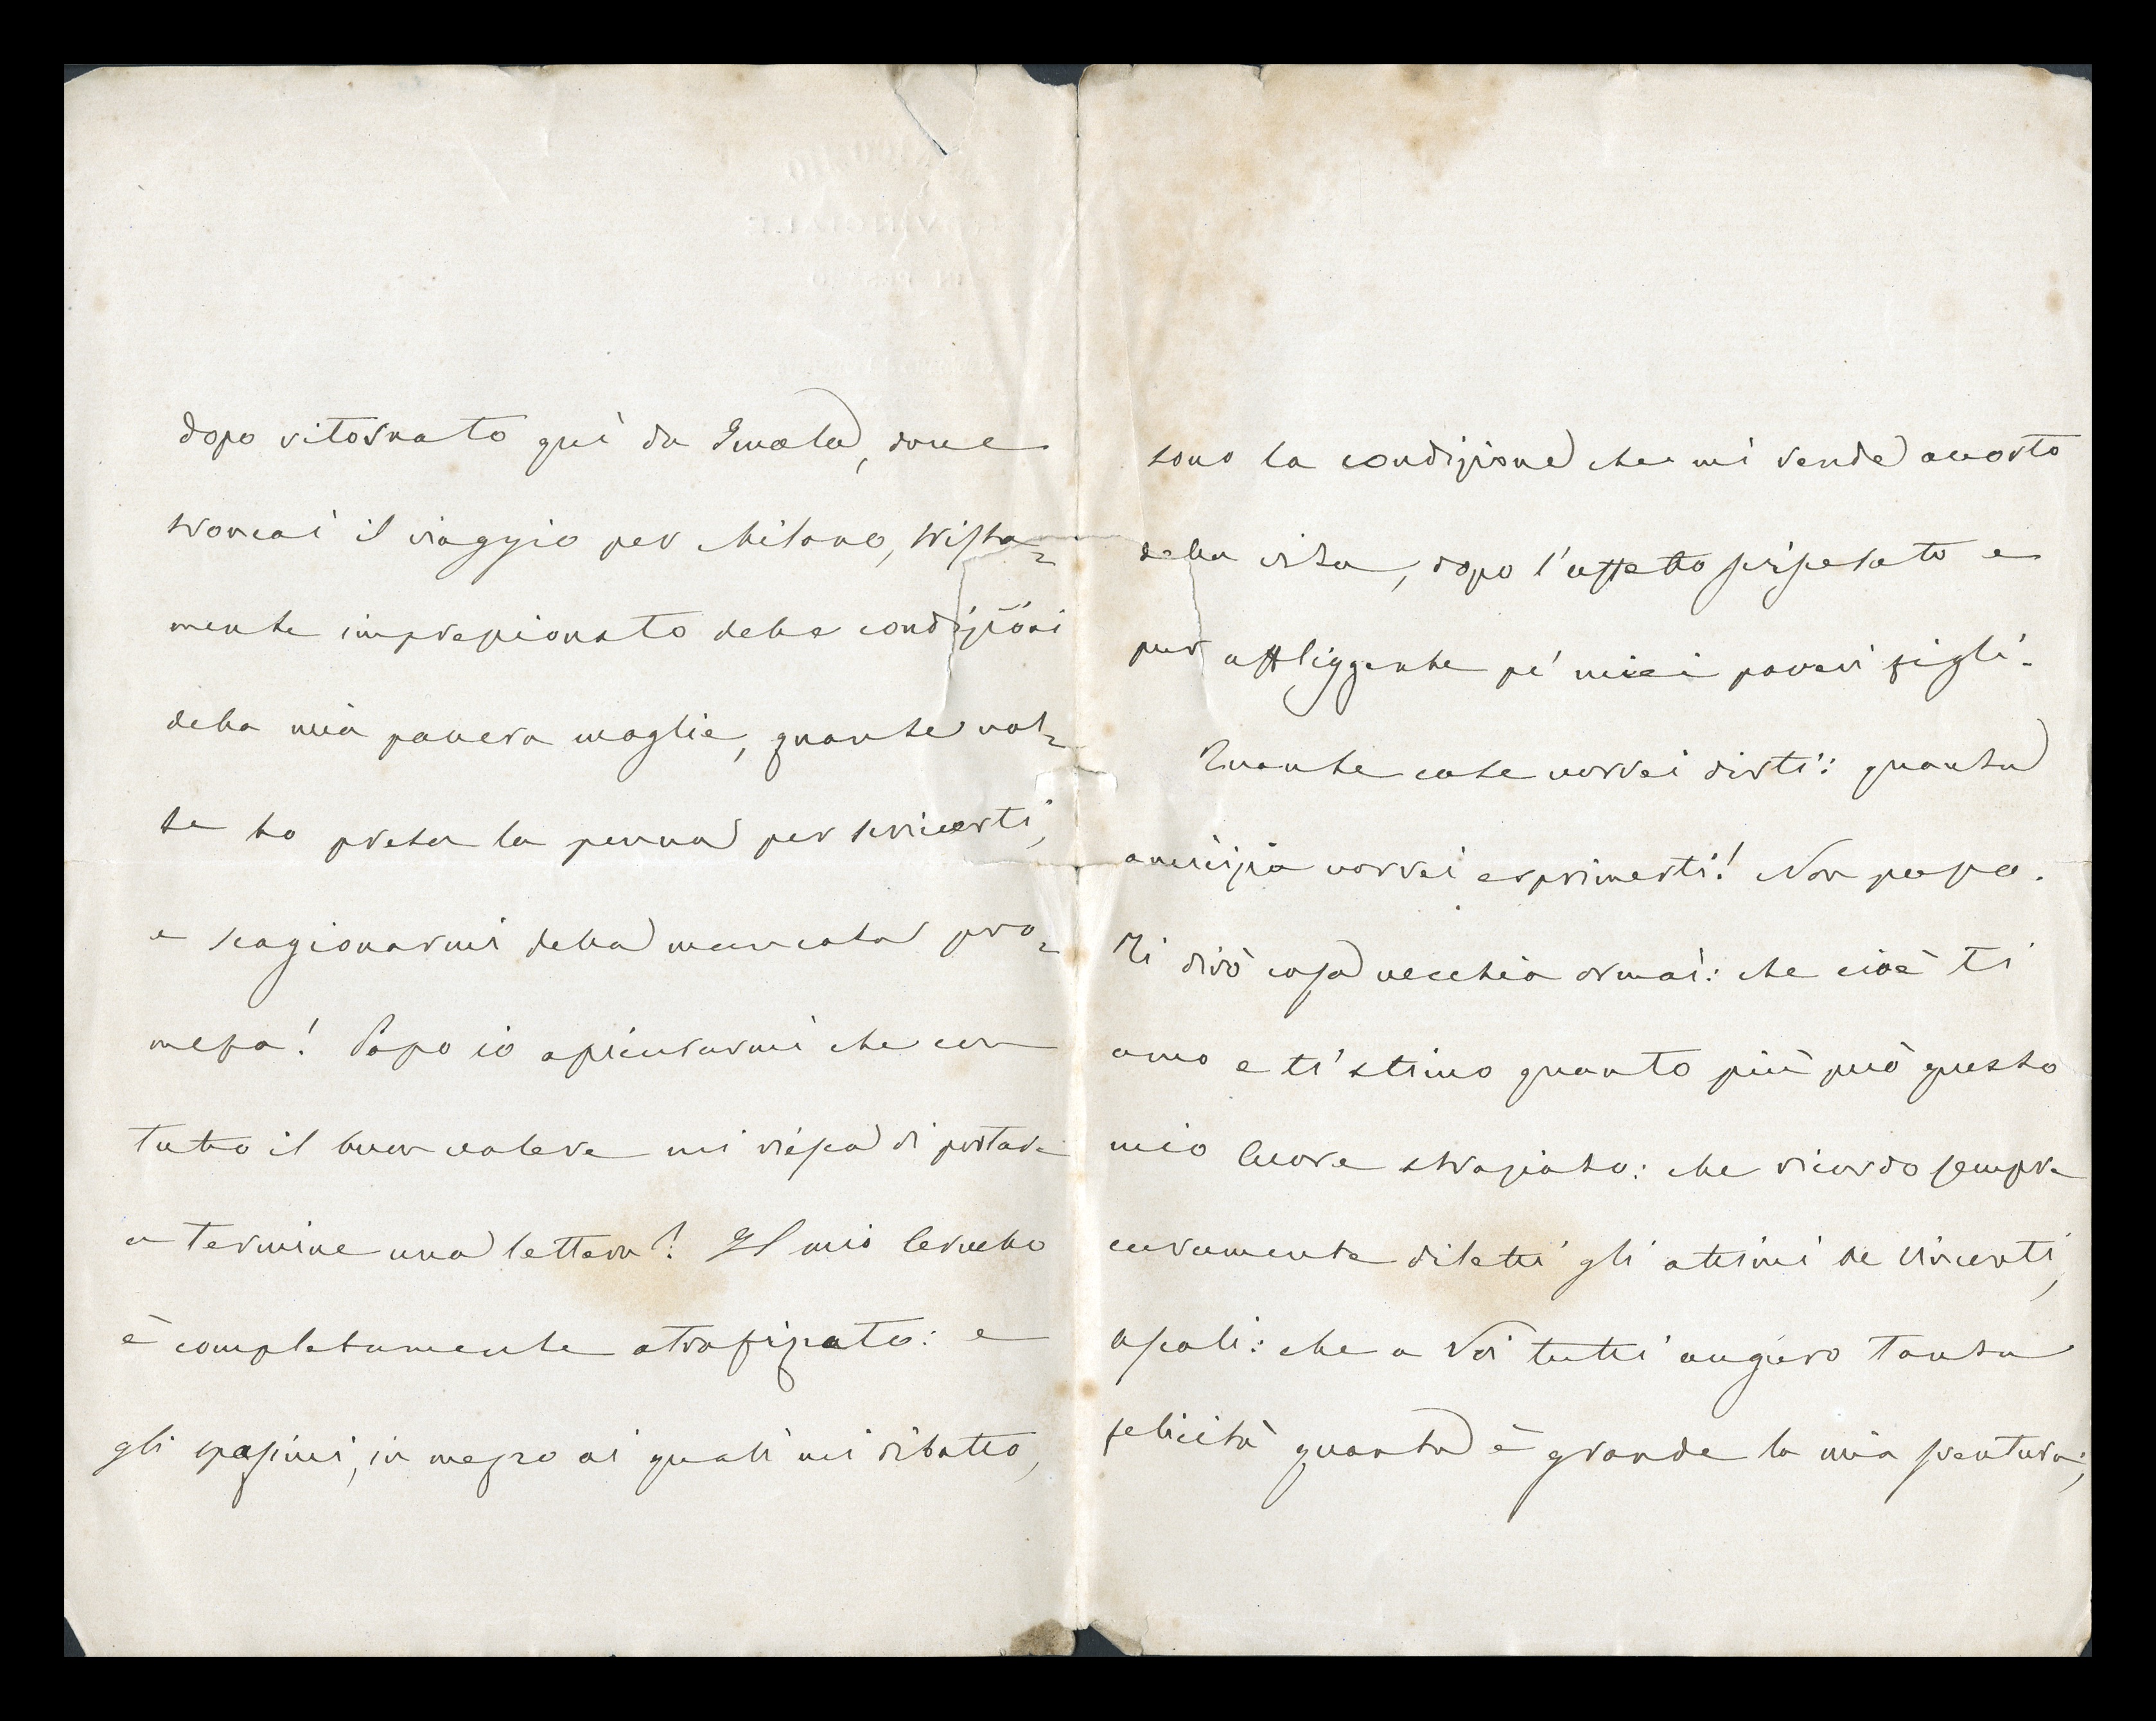 dopo ritornato quì da Imola, dove
troncai il viaggio per Milano, trista=
mente impressionato delle condizioni
della mia povera moglie, quante vol=
te ho presa la penna per scriverti,
e scagionarmi della mancata pro=
messa! Posso io assicurarmi che con
tutto il buon volere mi riesca di portare
a termine una lettera? Il mio cervello
è completamente atrofizzato: e
gli spasimi, in mezzo ai quali mi dibatto,
sono la condizione che mi rende accorto
della vita, dopo l'affetto sviscerato e
pur affliggente pe' miei poveri figli.
Quante cose vorrei dirti: quanta
amicizia vorrei esprimerti! Non posso.
Ti dirò cosa vecchia ormai: che cioè ti
amo e ti stimo quanto più può questo
mio cuore straziato: che ricordo sempre
caramente diletti gli ottimi De Vincenti,
Ascoli: che a Voi tutti auguro tanta
felicità quanta è grande la mia sventura;